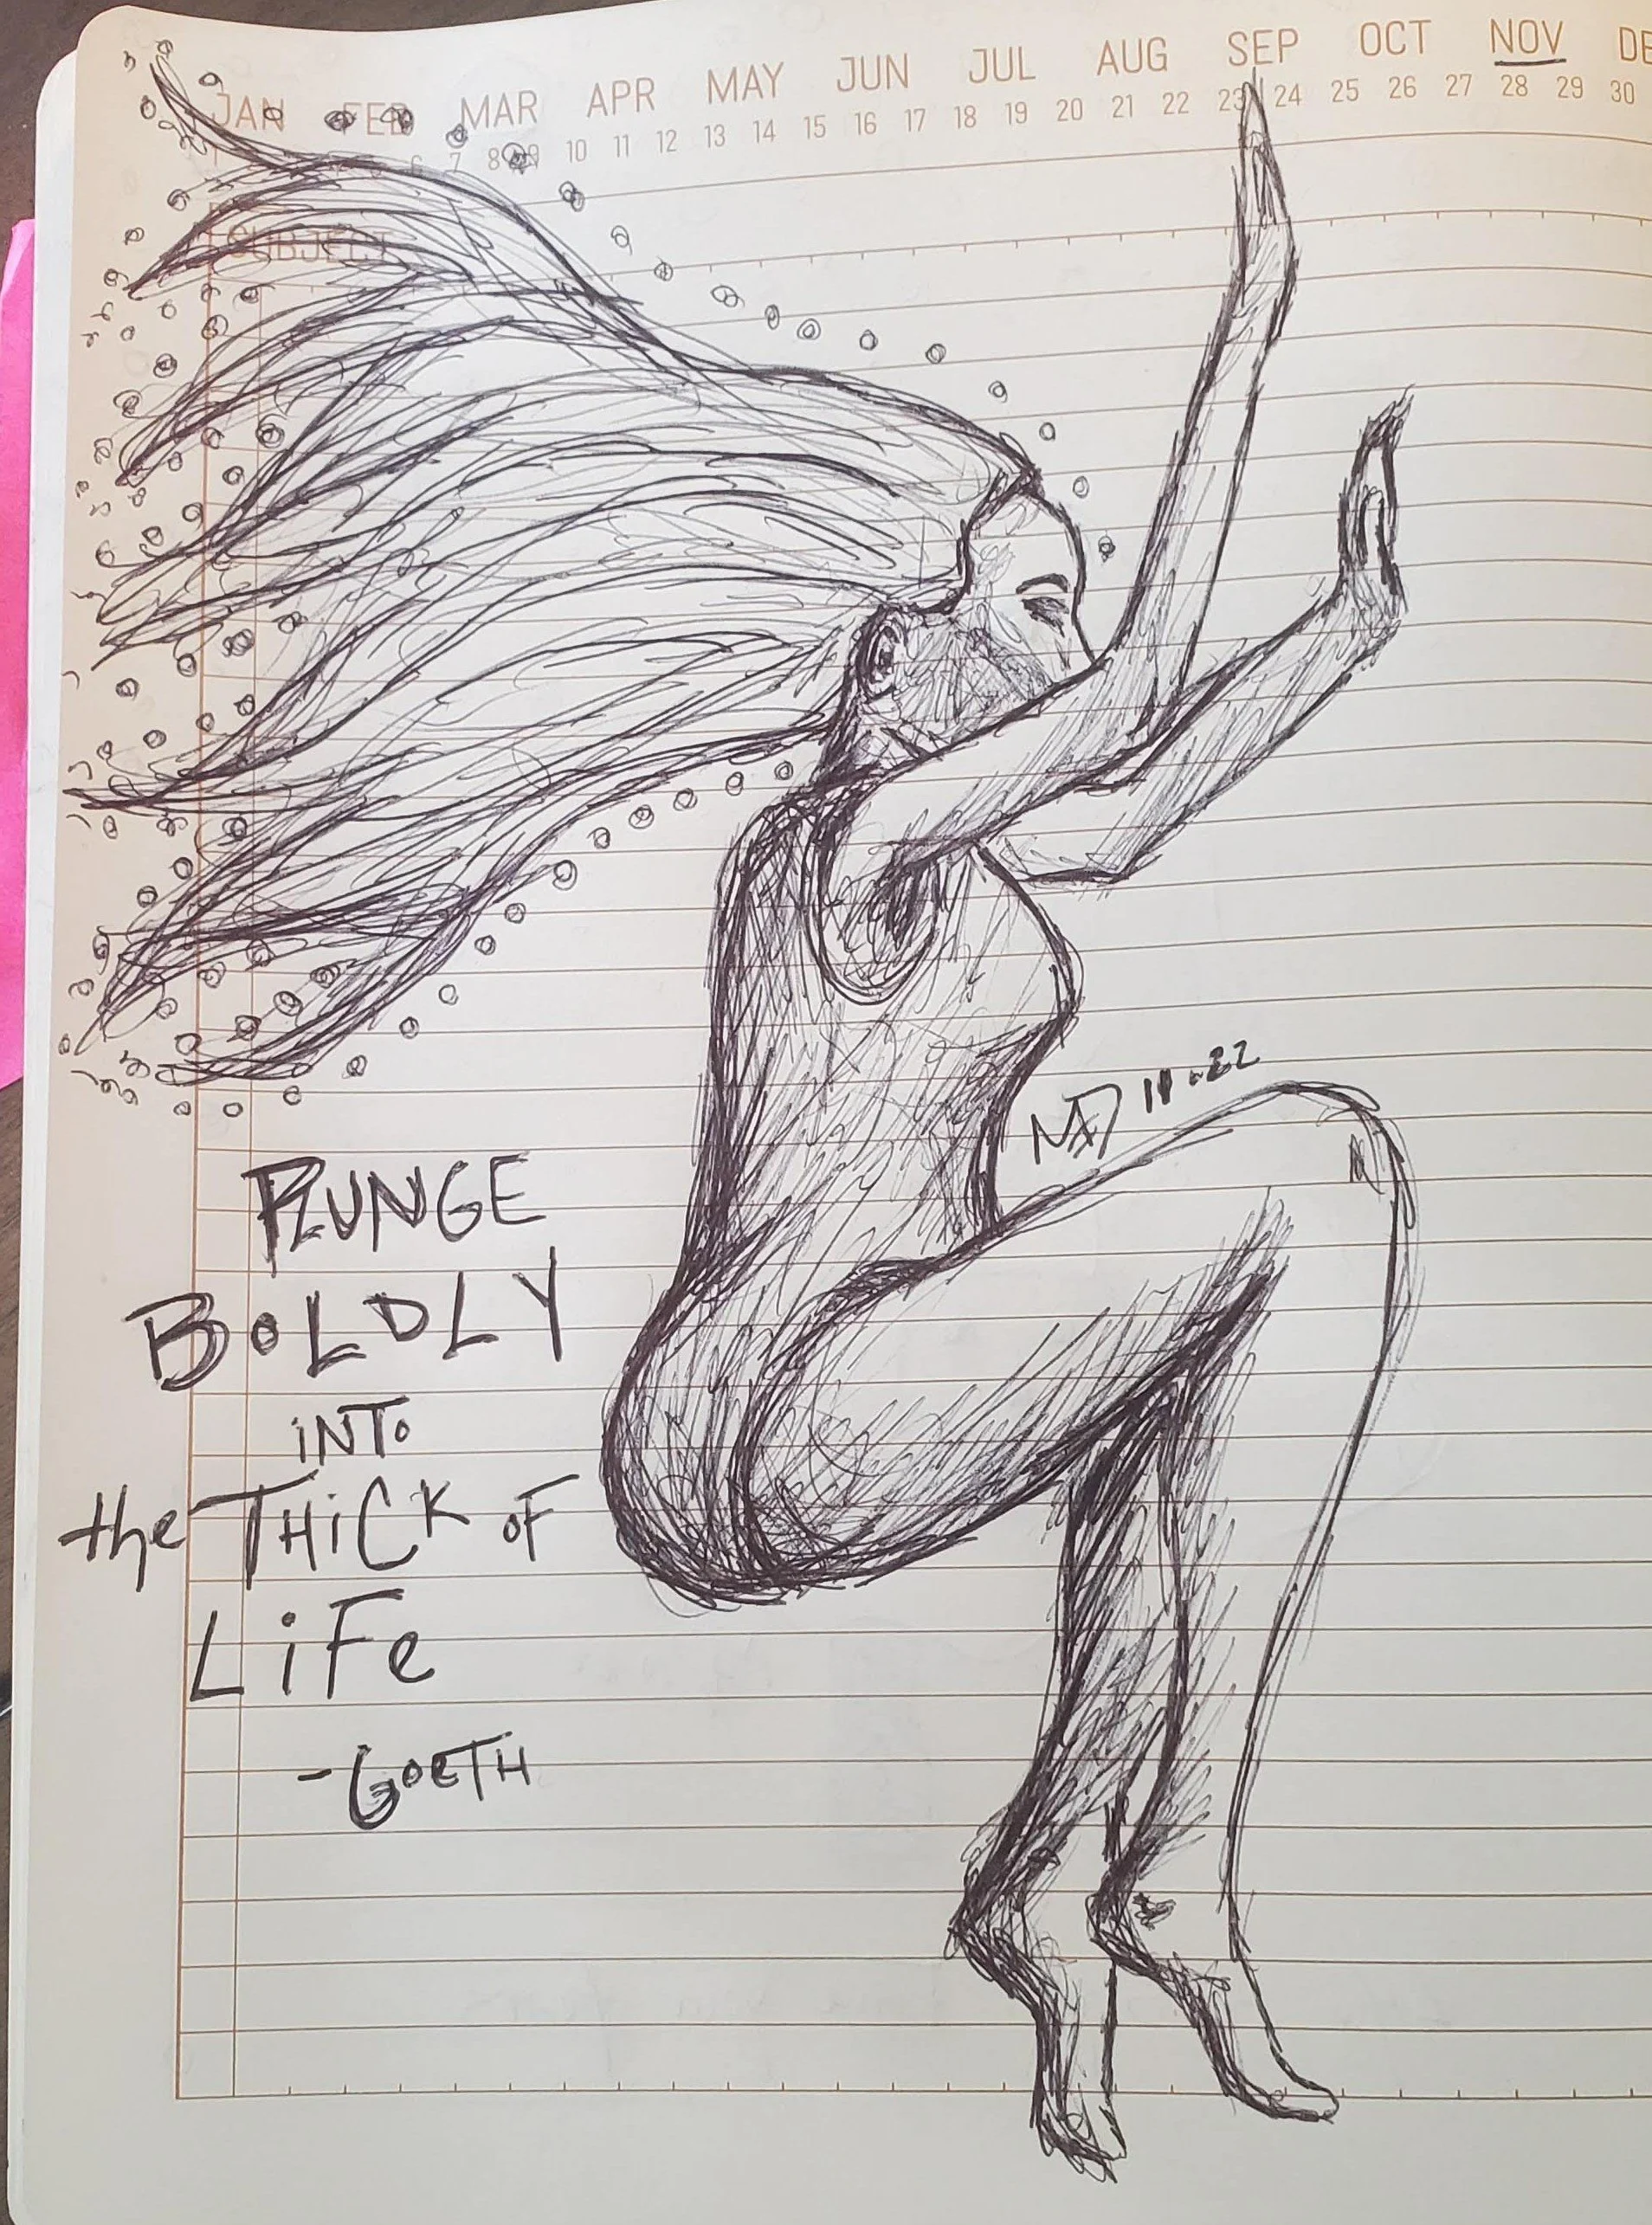 JAN FEB MAR APR MAY JUN JUL AUG SEP OCT NOV DE
6 7 8 9 10 11 12 13 14 15 16 17 18 19 20 21 22 23 24 25 26 27 28 29 30
SUBJECT
MD 11-22
PLUNGE
BOLDLY
iNTO
the THiCK OF
LiFe
-GOETH